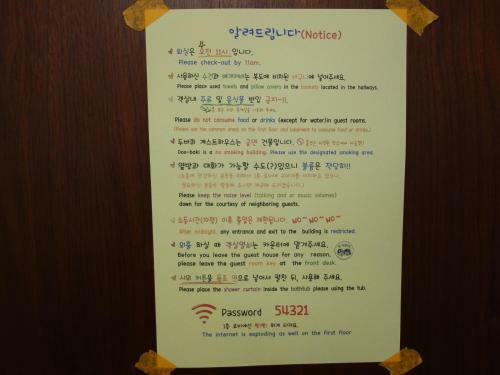 알려드립니다(Notice)
퇴실은 오전 11시 입니다.
Please check-out by 11am.
사용하신 수건과 베개커버는 복도에 비치된 바구니에 넣어주세요.
Please place used towels and pillow covers in the baskets located in the hallways.
객실내 주류 및 음식물 반입 금지~!!
Please do not consume food or drinks (except for water)in guest rooms.
(Please use the common areas on the first floor and basement to consume food or drinks.)
게스트하우스는 금연 건물입니다.
Doo-baki is a no smoking building. Please use the designated smoking area.
옆방과 대화가 가능할 수도(?)있으니 볼륨은 작당히!!
Please keep the noise level (talking and or music volumes)
down for the courtesy of neighboring guests.
소등시간(자정) 이후 출입은 제한됩니다. NO~ NO~ NO~
After midnight, any entrance and exit to the building is restricted.
외출 하실 때 객실열쇠는 카운터에 맡겨주세요.
Before you leave the guest house for any reason,
please leave the guest room key at the front desk.
샤워 커튼을 욕조 안으로 넣어서 펼친 뒤, 사용해 주세요.
Please place the shower curtain inside the bathtub please using the tub.
Password 54321
1층 로비에선 빵빵! 하게 터져요.
The internet is exploding as well on the first floor